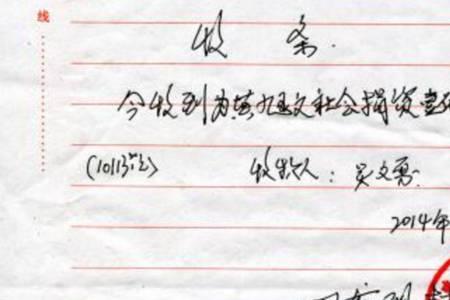 线
收条
今收到为黄旭文社会捐资壹
(10113元)
收款人：吴文勇
2014年